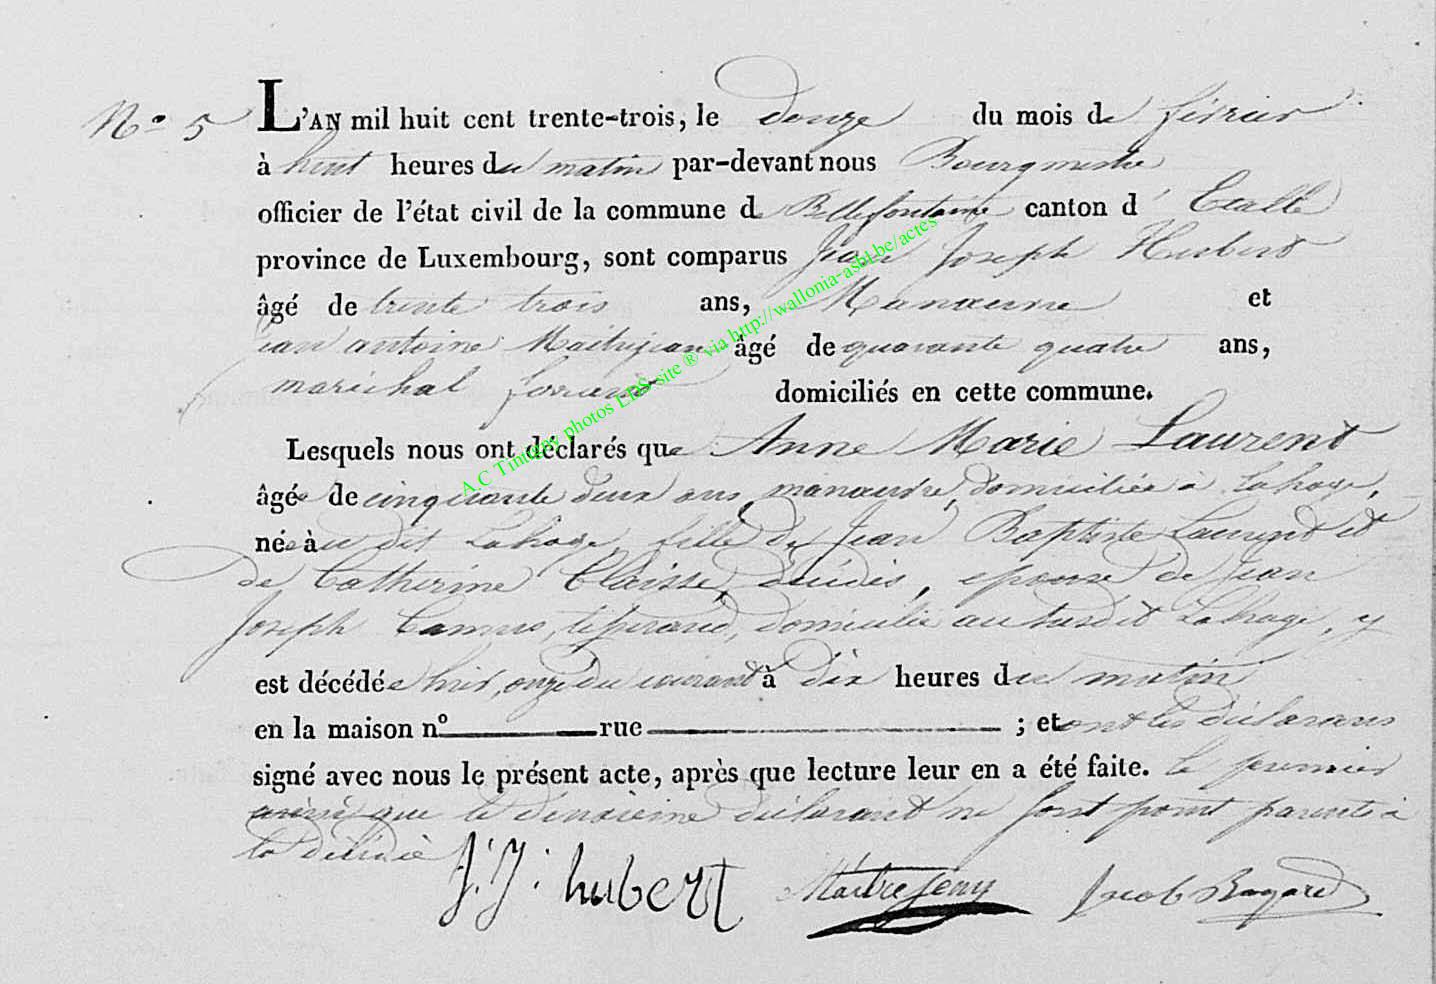 N° 5
L'AN mil huit cent trente-trois, le douze du mois de février
à huit heures du matin par-devant nous Bourgmestre
officier de l'état civil de la commune de Bellefontaine canton d' Etalle
province de Luxembourg, sont comparus Jean Joseph Hubert
âgé de trente trois ans, Manœuvre et
jean antoine Maitrejean âgé de quarante quatre ans,
maréchal ferrand domiciliés en cette commune.
Lesquels nous ont déclarés que Anne Marie Laurent
âgée de cinquante deux ans, manœuvre, domiciliée a Lahage,
née à au dit Lahage, fille de Jean Baptiste Laurent et
de Catherine Claisse, décédés, epouse de Jean
Joseph Camus, tisserand, domicilié au susdit Lahage, y
est décédée hier, onze du courant à dix heures du matin
en la maison n° rue ; et ont les déclarans
signé avec nous le présent acte, après que lecture leur en a été faite. le premier
ainsi que le deuxième déclarant ne sont point parents à
la décédée
J. J. hubert Maitrejean Jacob Bagard
A.C Tintigny photos LDS-site ® via http://wallonia-asbl.be/actes